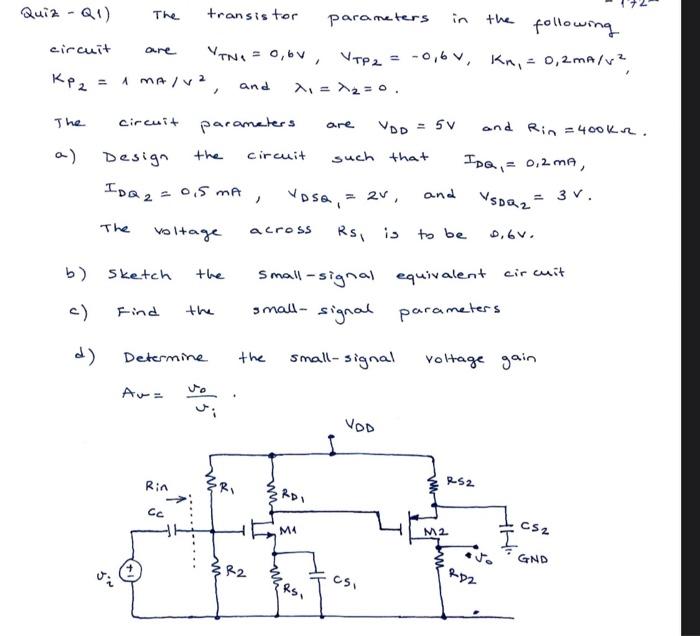 Quiz - Q1) The transistor parameters in the following
circuit are VTN1 = 0,6V, VTP2 = -0,6V, Kn1 = 0,2mA/V²,
Kp2 = 1 mA/V², and λ1 = λ2 = 0.
The circuit parameters are VDD = 5V and Rin = 400KΩ.
a) Design the circuit such that IDQ1 = 0,2mA,
IDQ2 = 0,5 mA, VDSQ1 = 2V, and VSDQ2 = 3V.
The voltage across RS1 is to be 0,6V.
b) Sketch the small-signal equivalent circuit
c) Find the small-signal parameters
d) Determine the small-signal voltage gain
Av = vo/vi.
VDD
Rin
R1
RD1
RS2
Cc
M1
M2
CS2
vo
GND
vi
R2
RS1
CS1
RD2